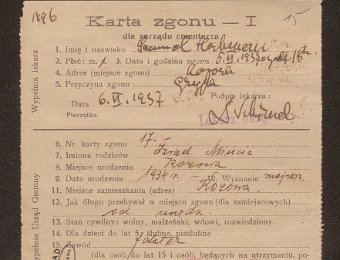 1896
15
Karta zgonu — I
dla zarządu cmentarza
Wypełnia lekarz
1. Imię i nazwisko Samuel
2. Płeć: m. ż 3. Data i godzina zgonu 5.VI.1937
4. Adres (miejsce zgonu) Kozowa
5. Przyczyna zgonu Grypa
Data 6.VI.1937 Podpis lekarza:
Pieczątka.
Wypełnia Urząd Gminny
6. Nr. karty zgonu 17.
7. Imiona rodziców Izrael
8. Miejsce urodzenia Kozowa
9. Data urodzenia 1934 r. 10. Wyznanie mojżesz
11. Miejsce zamieszkania (adres) Kozowa
12. Jak długo przebywał w miejscu zgonu (dla zamiejscowych)
od urodz.
13. Stan cywilny: wolny, małżeński, wdowi, rozwiedziony.
14. Dla dzieci do lat 5: ślubne, nieślubne
15. Zawód
(dla osób do lat 15 i osób, będących na utrzymaniu, po-